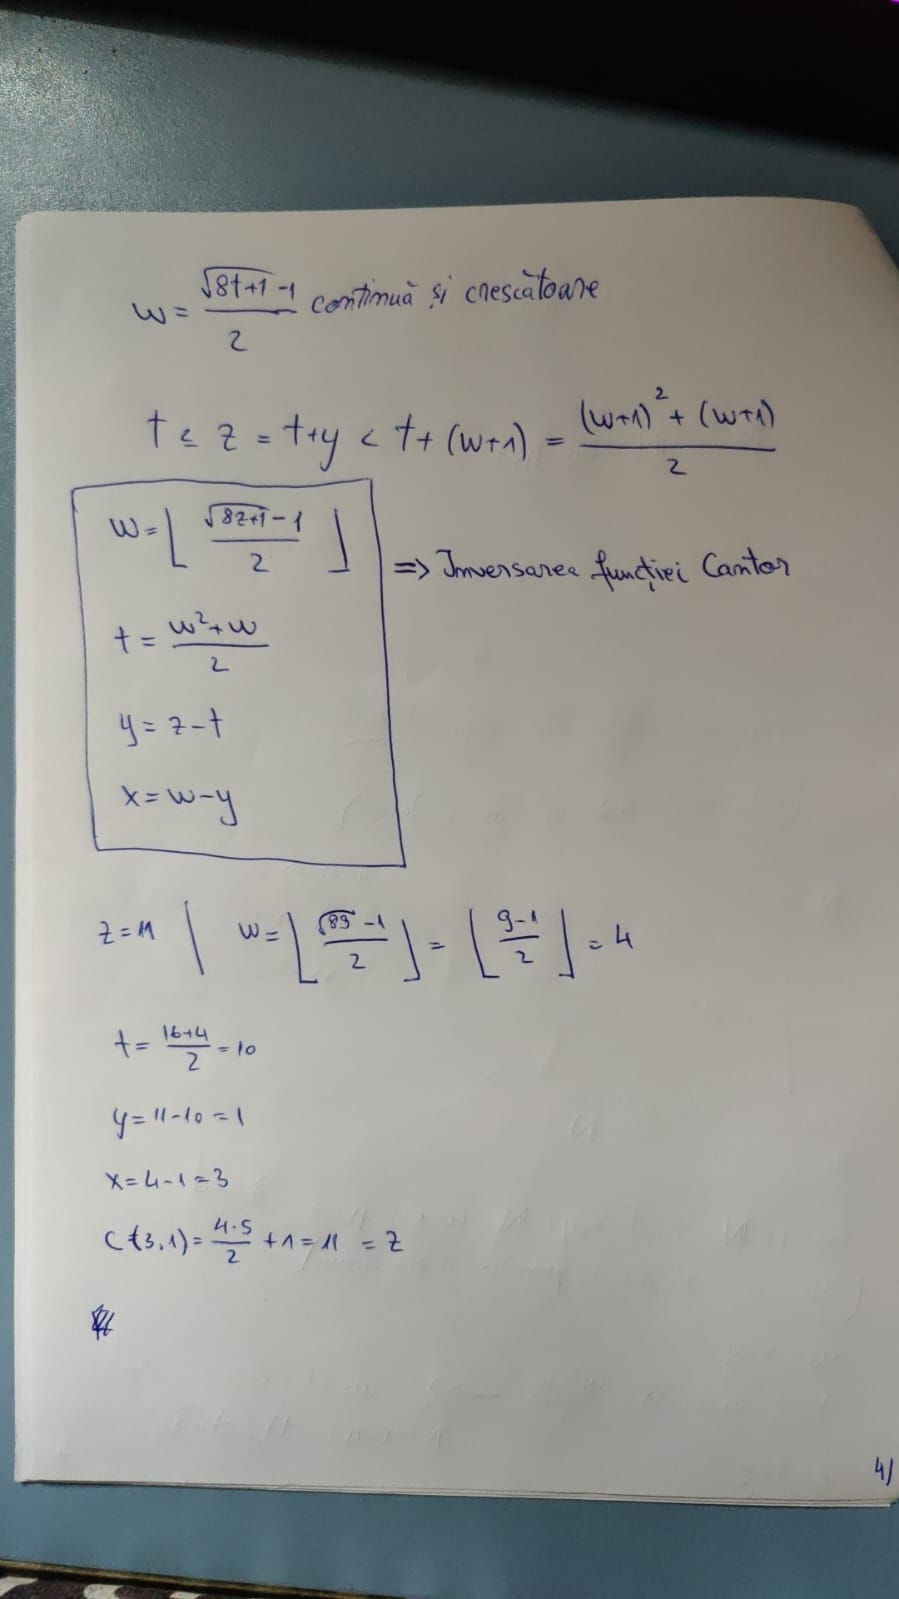 w = (√(8t+1) - 1) / 2 continuă și crescătoare
t ≤ z = t+y < t+(w+1) = ((w+1)² + (w+1)) / 2
w = ⌊(√(8z+1) - 1) / 2⌋
=> Inversarea funcției Cantor
t = (w²+w) / 2
y = z-t
x = w-y
z = 11 | w = ⌊(√89 - 1) / 2⌋ = ⌊(9-1) / 2⌋ = 4
t = (16+4) / 2 = 10
y = 11-10 = 1
x = 4-1 = 3
C(3,1) = (4·5) / 2 + 1 = 11 = z
4/